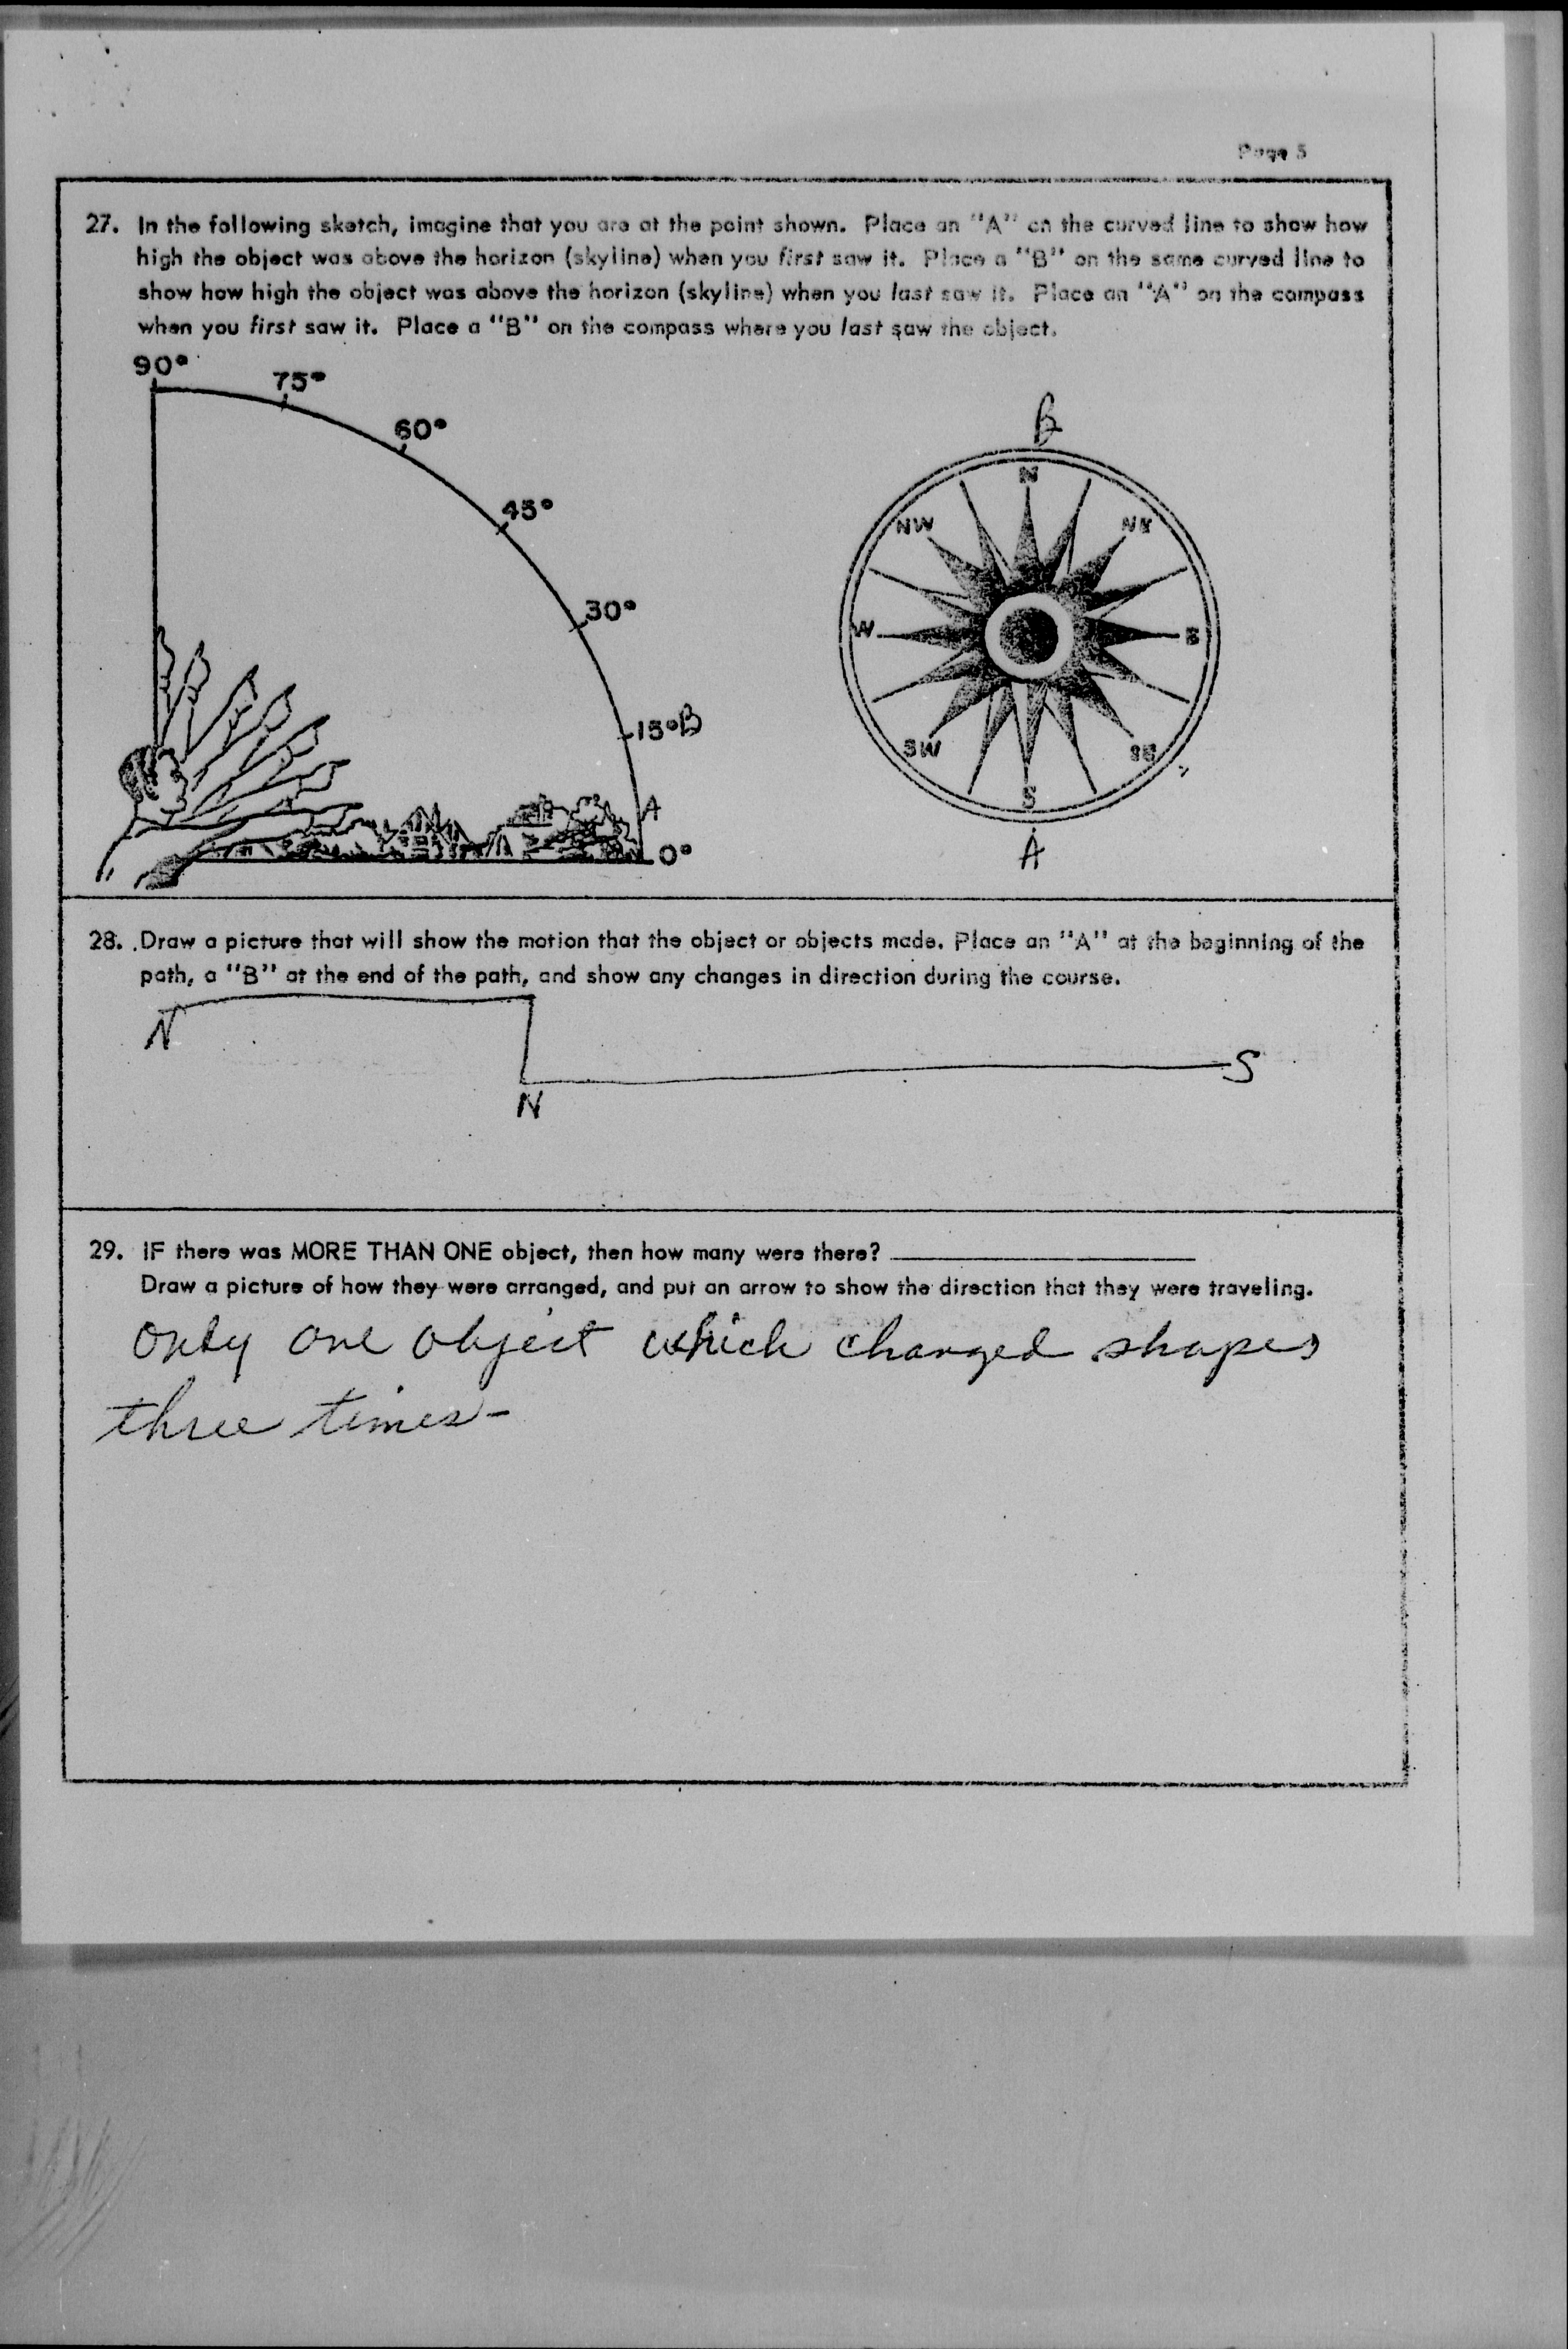 Page 5
27. In the following sketch, imagine that you are at the point shown. Place an "A" on the curved line to show how
high the object was above the horizon (skyline) when you first saw it. Place a "B" on the same curved line to
show how high the object was above the horizon (skyline) when you last saw it. Place an "A" on the compass
when you first saw it. Place a "B" on the compass where you last saw the object.
90°
75°
60°
45°
30°
15° B
A
0°
B
N
NW
NE
W
E
SW
SE
S
A
28. Draw a picture that will show the motion that the object or objects made. Place an "A" at the beginning of the
path, a "B" at the end of the path, and show any changes in direction during the course.
N
S
N
29. IF there was MORE THAN ONE object, then how many were there?
Draw a picture of how they were arranged, and put an arrow to show the direction that they were traveling.
only one object which changed shapes
three times-